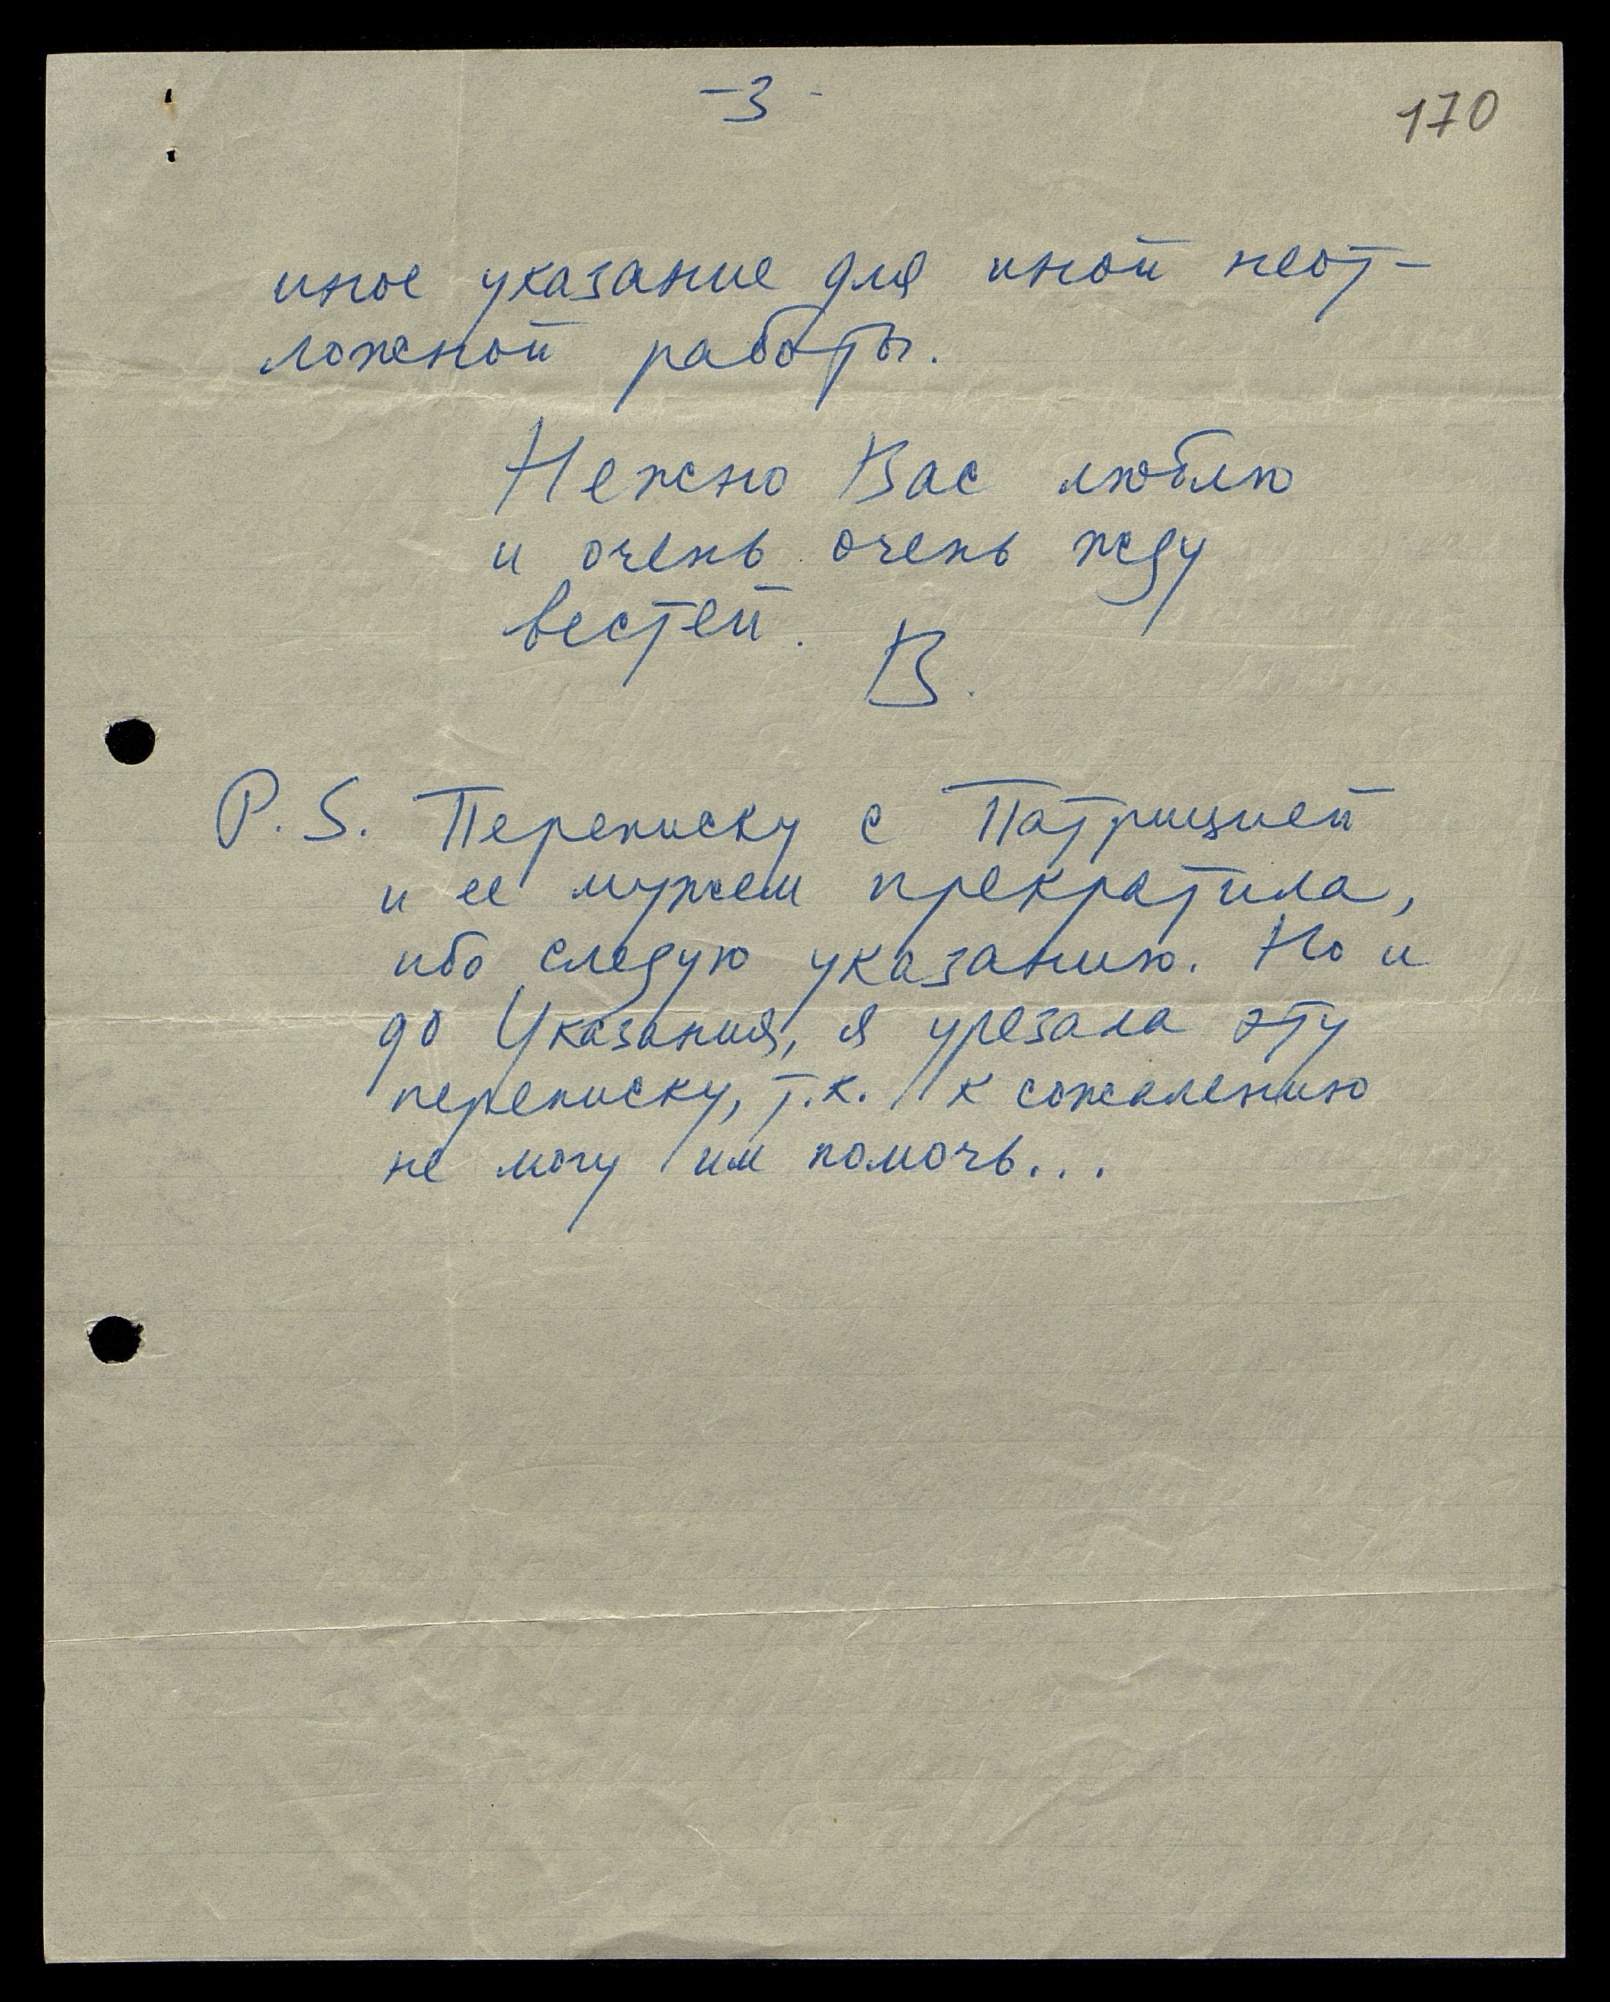 -3-
170
иное указание для иной неот-
ложной работы.
Нежно Вас люблю
и очень очень жду
вестей.
В.
P.S. Переписку с Патрицией
и ее мужем прекратила,
ибо следую указанию. Но и
до Указания, я урезала эту
переписку, т.к. к сожалению
не могу им помочь...